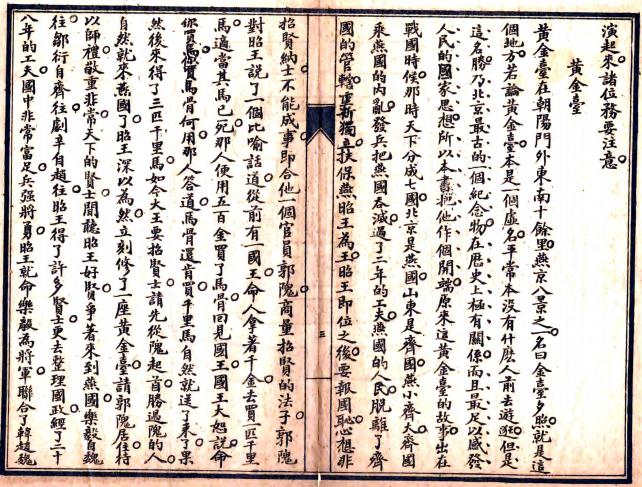 演起來諸位務要注意
黃金臺
黃金臺在朝陽門外東南十餘里燕京八景之一名曰金臺夕照就是這
個地方若論黃金臺本是一個虛名平常本沒有什麼人前去遊逛但是
這名勝乃北京最古的一個紀念物在歷史上極有關係而且最足以感發
人民的國家思想所以本書把他作個開端原來這黃金臺的故事出在
戰國時候那時天下分成七國北京是燕國山東是齊國燕小齊大齊國
乘燕國的內亂發兵把燕國吞滅過了二年的工夫燕國的人民脫離了齊
國的管轄重新獨立扶保燕昭王為王昭王即位之後要報國恥心想非
招賢納士不能成事即合他一個官員郭隗商量招賢的法子郭隗
對昭王說了一個比喻話道從前有一國王命人拿著千金去買一匹千里
馬適當其馬已死那人便用五百金買了馬骨回見國王國王大怒說命
你買馬你買馬骨何用那人答道馬骨還肯買千里馬自然就送了來了果
然後來得了三匹千里馬如今大王要招賢士請先從隗起首勝過隗的人
自然就來燕國了昭王深以為然立刻修了一座黃金臺請郭隗居住待
以師禮敬重非常天下的賢士聞聽昭王好賢爭著來到燕國樂毅自魏
往鄒衍自齊往劇辛自趙往昭王得了許多賢士更去整理國政經了二十
八年的工夫國中非常富足兵強將勇昭王就命樂毅為將軍聯合了韓趙魏
三